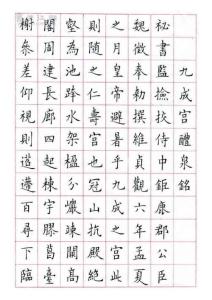 九成宮醴泉銘
祕書監撿挍侍中鉅鹿郡公臣
魏徵奉勑撰維貞觀六年孟夏
之月皇帝避暑乎九成之宮此
則随之仁壽宮也冠山抗殿絕
壑為池跨水架楹分巖竦闕高
閣周建長廊四起棟宇膠葛臺
榭叅差仰視則迢遰百尋下臨